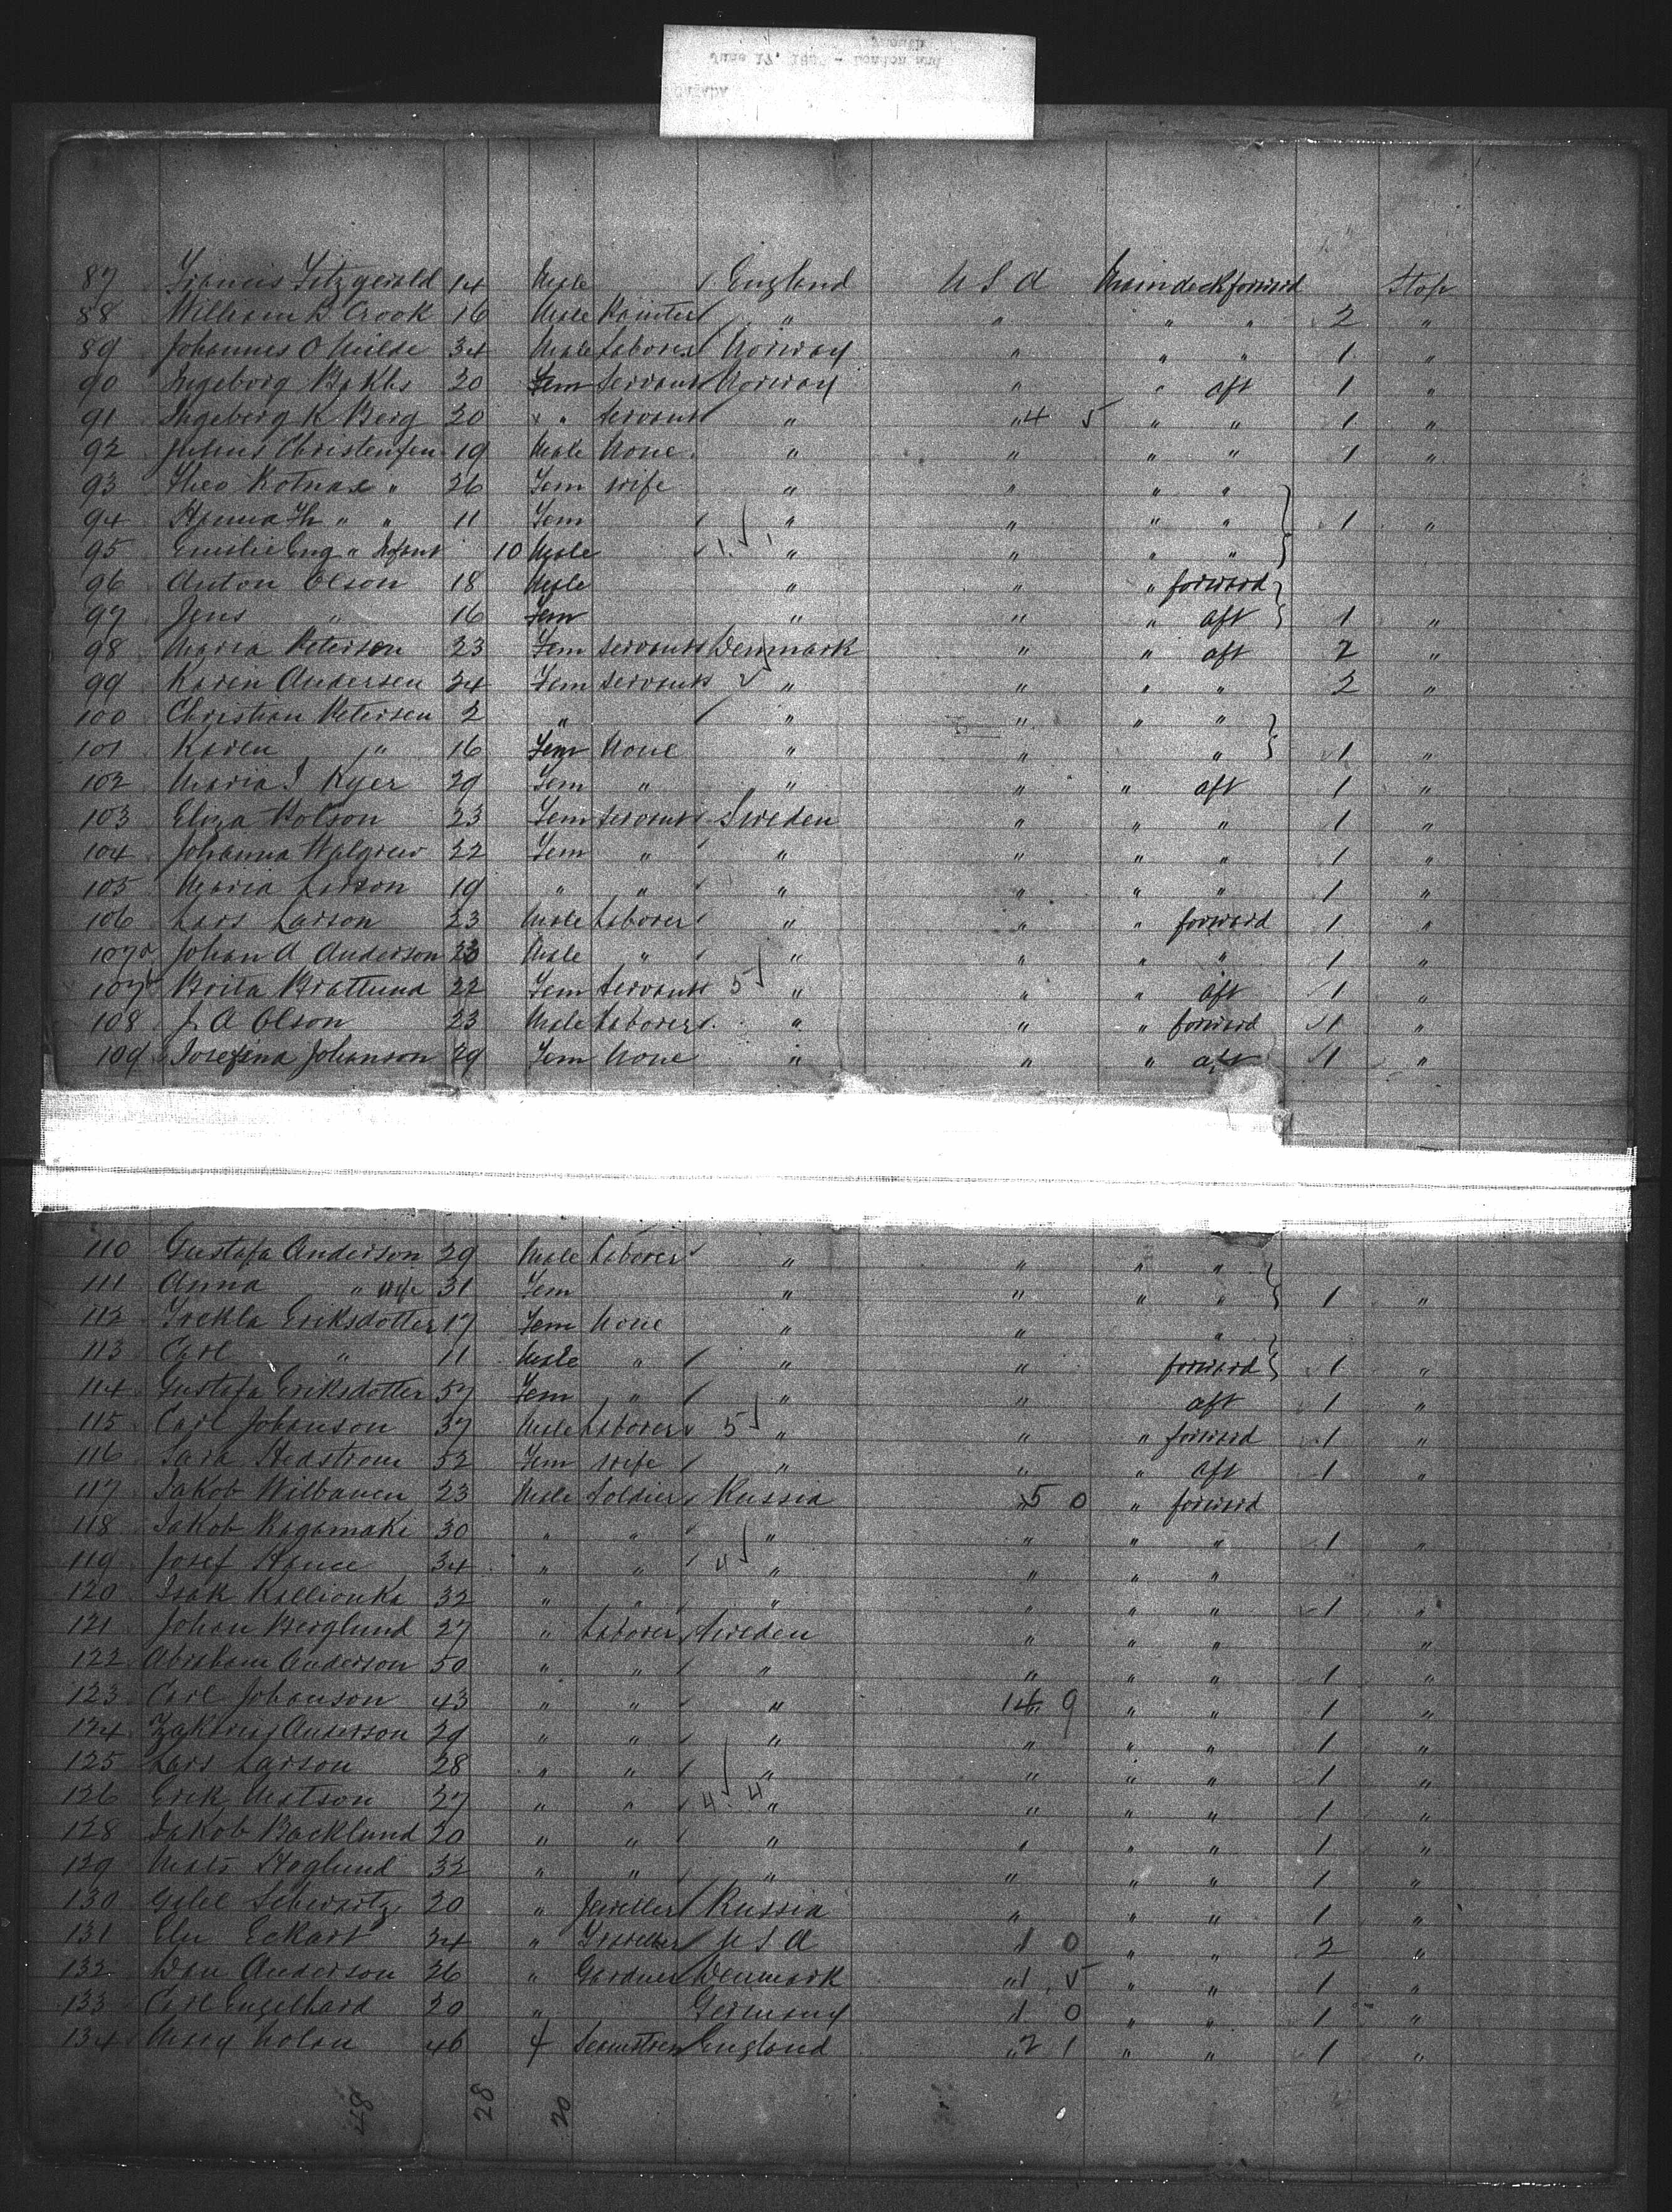 87 Francis Fitzgerald 14 Male England U S A Maindeck forward Stop
88 William B Crook 16 Male Painter " " " " 2 "
89 Johannes O Milde 34 Male Laborer Norway " " " 1 "
90 Ingeborg 20 Fem Servant Norway " " aft 1 "
91 Ingeborg K Berg 20 " Servant " " 4 5 " " 1 "
92 Julius Christensen 19 Male None " " " " 1 "
93 Theo " 26 Fem wife " " " "
94 Hanna Th " " 11 Fem " " " " 1 "
95 Emelie Eng " Infant 10 Male 1 1 " " " "
96 Anton Olson 18 Male " " " forward
97 Jens " 16 Fem " " " aft 1 "
98 Maria Peterson 23 Fem Servant Denmark " " aft 2 "
99 Karin Andersen 24 Fem Servant " " " " 2 "
100 Christian Petersen 2 " " " " "
101 Karen " 16 Fem None " " " 1 "
102 Maria J Kyer 29 Fem " " " " aft 1 "
103 Eliza Rolson 23 Fem Servant Sweden " " " 1 "
104 Johanna Walgrew 22 Fem " " " " " 1 "
105 Maria Larson 19 " " " " " " 1 "
106 Lars Larson 23 Male Laborer " " " forward 1 "
107a Johan A Anderson 23 Male " " " " " 1 "
107b Brita Brattlund 22 Fem Servant 5 " " " aft 1 "
108 J. A Olson 23 Male Laborer " " " forward 1 "
109 Josefina Johanson 29 Fem None " " " aft 1 "
110 Gustafa Anderson 29 Male Laborer " " " "
111 Anna " wife 31 Fem " " " " 1 "
112 Eriksdotter 17 Fem None " " "
113 Carl " 11 Male " " " forward 1 "
114 Gustafa Eriksdotter 57 Fem " " " aft 1 "
115 Carl Johanson 37 Male Laborer 5 " " " forward 1 "
116 Sara Hedstrom 52 Fem wife " " " aft 1 "
117 Jakob Wilbauen 23 Male Soldier Russia 5 0 " forward
118 Jakob Ragamaki 30 " " " " " " 1 "
119 Josef Hauce 34 " " 4 " " " "
120 Isak Kallionka 32 " " " " " " 1 "
121 Johan Berglund 27 " Laborer Sweden " " " "
122 Abraham Anderson 50 " " " " " " 1 "
123 Carl Johanson 43 " " " 9 " " 1 "
124 Anderson 29 " " " " " " 1 "
125 Lars Larson 28 " " " " " " 1 "
126 Erik Matson 27 " " 4 4 " " " " 1 "
128 Jakob Backlund 20 " " " " " " 1 "
129 Mats Hoglund 32 " " " " " " 1 "
130 Schwartz 20 " Jeweller Russia " " " 1 "
131 Eckart 34 " Traveller U S A 1 0 " " 2 "
132 Dan Anderson 26 " Gardner Denmark " 1 5 " " 1 "
133 Carl Engelhard 20 " Germany 1 0 " " 1 "
134 Mary Nolan 46 f Seamstress England " 2 1 " " 1 "
48 28 20